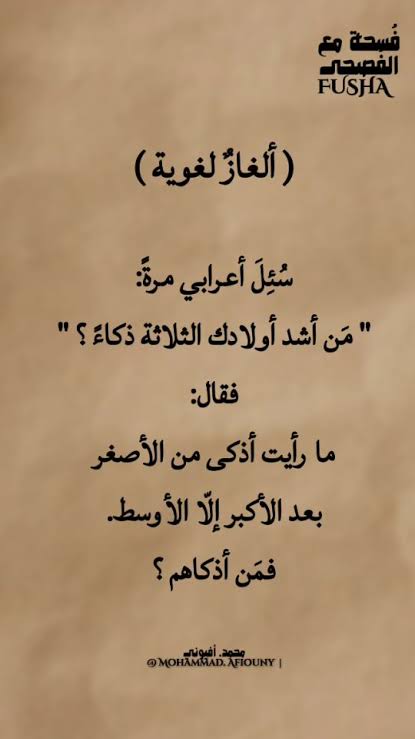 فُسحة مع
الفصحى
FUSHA
( ألغازٌ لغوية )
سُئِلَ أعرابي مرةً:
" مَن أشد أولادك الثلاثة ذكاءً ؟ "
فقال:
ما رأيت أذكى من الأصغر
بعد الأكبر إلّا الأوسط.
فمَن أذكاهم ؟
محمد. أفيوني
@MOHAMMAD.AFIOUNY |